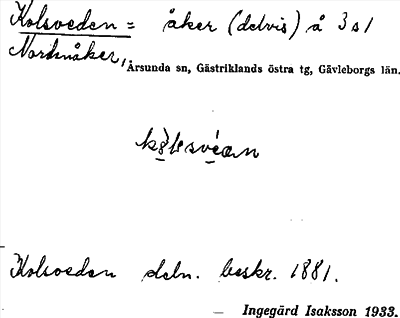 Kolsveden = åker (delvis) å 3 s1
Nordanåker,
Årsunda sn, Gästriklands östra tg, Gävleborgs län.
Kolsveden deln. beskr. 1881.
Ingegärd Isaksson 1933.